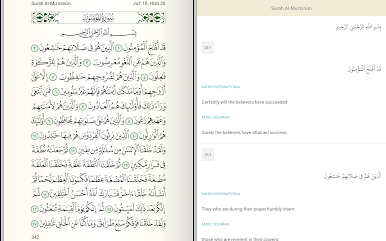 Surah Al-Mu'minūn
Juz' 18, Hizb 35
سُورَةُ المُؤْمِنُون
بِسْمِ اللَّهِ الرَّحْمَٰنِ الرَّحِيمِ
قَدْ أَفْلَحَ الْمُؤْمِنُونَ ١ الَّذِينَ هُمْ فِي صَلَاتِهِمْ خَاشِعُونَ ٢
وَالَّذِينَ هُمْ عَنِ اللَّغْوِ مُعْرِضُونَ ٣ وَالَّذِينَ هُمْ لِلزَّكَاةِ
فَاعِلُونَ ٤ وَالَّذِينَ هُمْ لِفُرُوجِهِمْ حَافِظُونَ ٥ إِلَّا عَلَىٰ
أَزْوَاجِهِمْ أَوْ مَا مَلَكَتْ أَيْمَانُهُمْ فَإِنَّهُمْ غَيْرُ مَلُومِينَ ٦ فَمَنِ ابْتَغَىٰ
وَرَاءَ ذَٰلِكَ فَأُولَٰئِكَ هُمُ الْعَادُونَ ٧ وَالَّذِينَ هُمْ لِأَمَانَاتِهِمْ
وَعَهْدِهِمْ رَاعُونَ ٨ وَالَّذِينَ هُمْ عَلَىٰ صَلَوَاتِهِمْ يُحَافِظُونَ ٩ أُولَٰئِكَ
هُمُ الْوَارِثُونَ ١٠ الَّذِينَ يَرِثُونَ الْفِرْدَوْسَ هُمْ فِيهَا خَالِدُونَ ١١
وَلَقَدْ خَلَقْنَا الْإِنْسَانَ مِنْ سُلَالَةٍ مِنْ طِينٍ ١٢ ثُمَّ جَعَلْنَاهُ نُطْفَةً
فِي قَرَارٍ مَكِينٍ ١٣ ثُمَّ خَلَقْنَا النُّطْفَةَ عَلَقَةً فَخَلَقْنَا الْعَلَقَةَ
مُضْغَةً فَخَلَقْنَا الْمُضْغَةَ عِظَامًا فَكَسَوْنَا الْعِظَامَ لَحْمًا ثُمَّ
أَنْشَأْنَاهُ خَلْقًا آخَرَ فَتَبَارَكَ اللَّهُ أَحْسَنُ الْخَالِقِينَ ١٤ ثُمَّ
إِنَّكُمْ بَعْدَ ذَٰلِكَ لَمَيِّتُونَ ١٥ ثُمَّ إِنَّكُمْ يَوْمَ الْقِيَامَةِ تُبْعَثُونَ ١٦
وَلَقَدْ خَلَقْنَا فَوْقَكُمْ سَبْعَ طَرَائِقَ وَمَا كُنَّا عَنِ الْخَلْقِ غَافِلِينَ ١٧
342
Surah Al-Mu'minūn
بِسْمِ اللَّهِ الرَّحْمَٰنِ الرَّحِيمِ
23:1
قَدْ أَفْلَحَ الْمُؤْمِنُونَ
SAHIH INTERNATIONAL
Certainly will the believers have succeeded:
Surely the believers have attained success:
23:2
الَّذِينَ هُمْ فِي صَلَاتِهِمْ خَاشِعُونَ
SAHIH INTERNATIONAL
They who are during their prayer humbly intent
those who are reverent in their prayers;